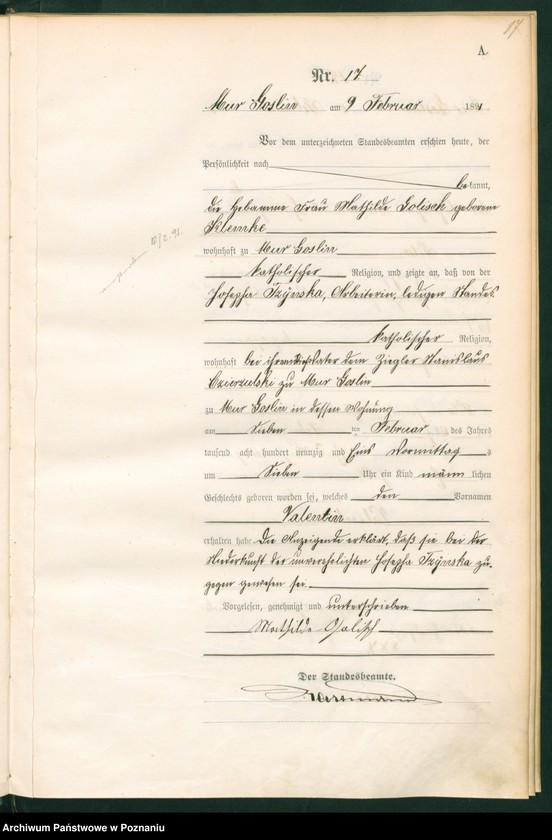 17
A.
Nr. 17
Mur Goslin am 9 Februar 1891
Vor dem unterzeichneten Standesbeamten erschien heute, der
Persönlichkeit nach
bekannt,
die Hebamme Frau Mathilde Golisch geborene
Klemke
wohnhaft zu Mur Goslin
katholischer Religion, und zeigte an, daß von der
Josepha Trzynska, Arbeiterin, ledigen Standes
katholischer Religion,
wohnhaft bei ihrem Stiefvater dem Ziegler Stanislaus
zu Mur Goslin
zu Mur Goslin in dessen Wohnung
am Sieben ten Februar des Jahres
tausend acht hundert neunzig und Eins Vormittag s
um Sieben Uhr ein Kind männlichen
Geschlechts geboren worden sei, welches den Vornamen
Valentin
erhalten habe Die Anzeigende erklärt, daß sie bei der
Niederkunft der unverehelichten Josepha Trzynska zu-
gegen gewesen sei.
Vorgelesen, genehmigt und unterschrieben
Mathilde Golisch
Der Standesbeamte.
10/2.91.
Archiwum Państwowe w Poznaniu